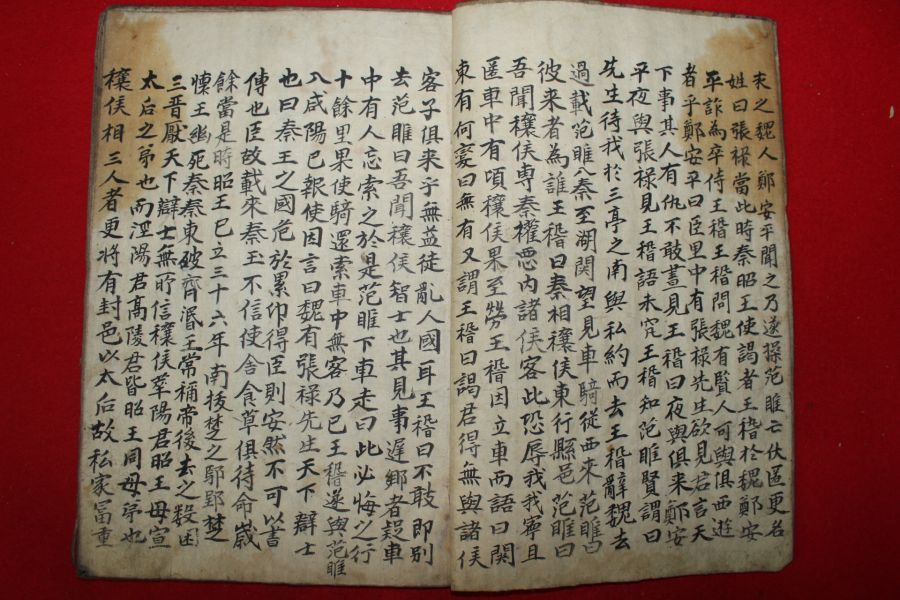 求之魏人鄭安平聞之乃遂操范睢亡伏匿更名
姓曰張祿當此時秦昭王使謁者王稽於魏鄭安
平詐為卒侍王稽王稽問魏有賢人可與俱西遊
者乎鄭安平曰臣里中有張祿先生欲見君言天
下事其人有仇不敢晝見王稽曰夜與俱来鄭安
平夜與張祿見王稽語未究王稽知范睢賢謂曰
先生待我於三亭之南與私約而去王稽辭魏去
過載范睢入秦至湖関望見車騎從西来范睢曰
彼来者為誰王稽曰秦相穰侯東行縣邑范睢曰
吾聞穰侯専秦權惡内諸侯客此恐辱我我寧且
匿車中有頃穰侯果至勞王稽因立車而語曰関
東有何変曰無有又謂王稽曰謁君得無與諸侯
客子俱来乎無益徒亂人國耳王稽曰不敢即別
去范睢曰吾聞穰侯智士也其見事遲鄉者疑車
中有人忘索之於是范睢下車走曰此必悔之行
十餘里果使騎還索車中無客乃已王稽遂與范睢
入咸陽已報使因言曰魏有張祿先生天下辯士
也曰秦王之國危於累卵得臣則安然不可以書
傳也臣故載來秦王不信使舍食草俱待命歲
餘當是時昭王已立三十六年南拔楚之鄢郢楚
懷王幽死秦秦東破齊湣王常稱帝後去之数困
三晋厭天下辯士無所信穰侯華陽君昭王母宣
太后之弟也而涇陽君高陵君皆昭王同母弟也
穰侯相三人者更將有封邑以太后故私家冨重